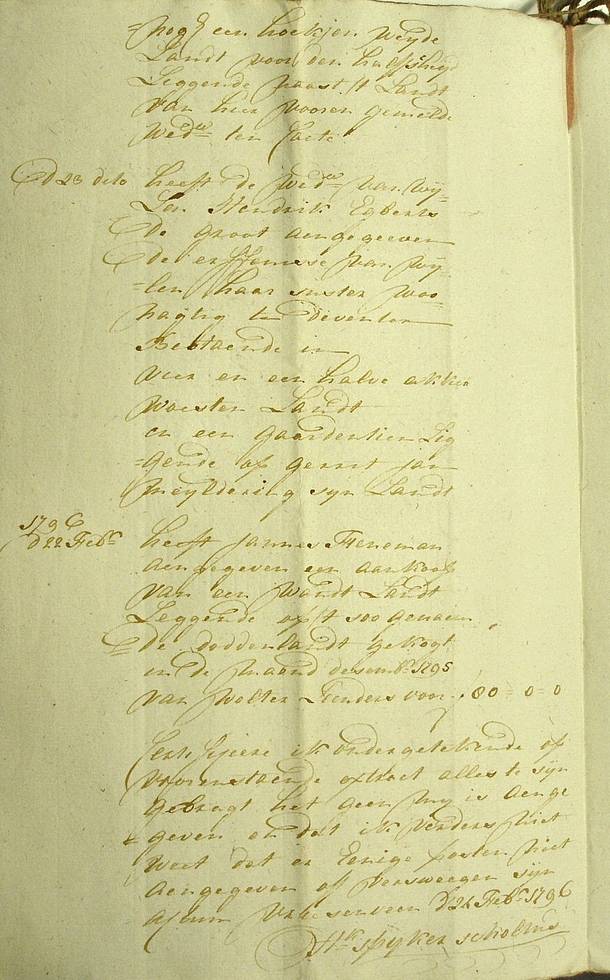 nog een hoekjen weyde
Landt voor den
Leggende naast 't Landt
van hier vooren gemelde
Wed:w ten
d 23 dito heeft de Wed:w van wy-
Len Hendrik Egberts
de groot aengegeeven
de erffenisse van wy-
=len haar suster woo
nagtig te deventer
Bestaende in
vier en een halve akker
woesten Landt
en een gaardentien Lig
=gende op gerrit jan
meyldering syn Landt
1796
d 22 Feb: heeft jannes
aengegeven een aankoop
van een Landt
Leggende op 't soo genaem
de doddenlandt gekogt
in de maand desemb: 1795
van wolter voor 80 = 0 = 0
Certifisere ik ondergetekende op
voorenstaende extract alles te syn
gebragt het geen my is aenge
geven en dat ik verders niet
weet dat er Eenige posten niet
aengegeven of versweegen syn
actum d 22 Feb: 1796
spyker scholtus